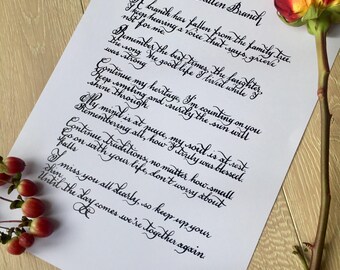 Fallen Branch
A branch has fallen from the family tree
I keep hearing a voice that says grieve
not for me.
Remember the best times, the laughter,
the song, the good life I lived while I
was strong.
Continue my heritage, I'm counting on you
Keep smiling and surely the sun will
shine through.
My mind is at peace, my soul is at rest
Remembering all, how I truly was blessed.
Continue traditions, no matter how small
Go on with your life, don't worry about
falls
I miss you all dearly, so keep up your
chin
Until the day comes we're together again